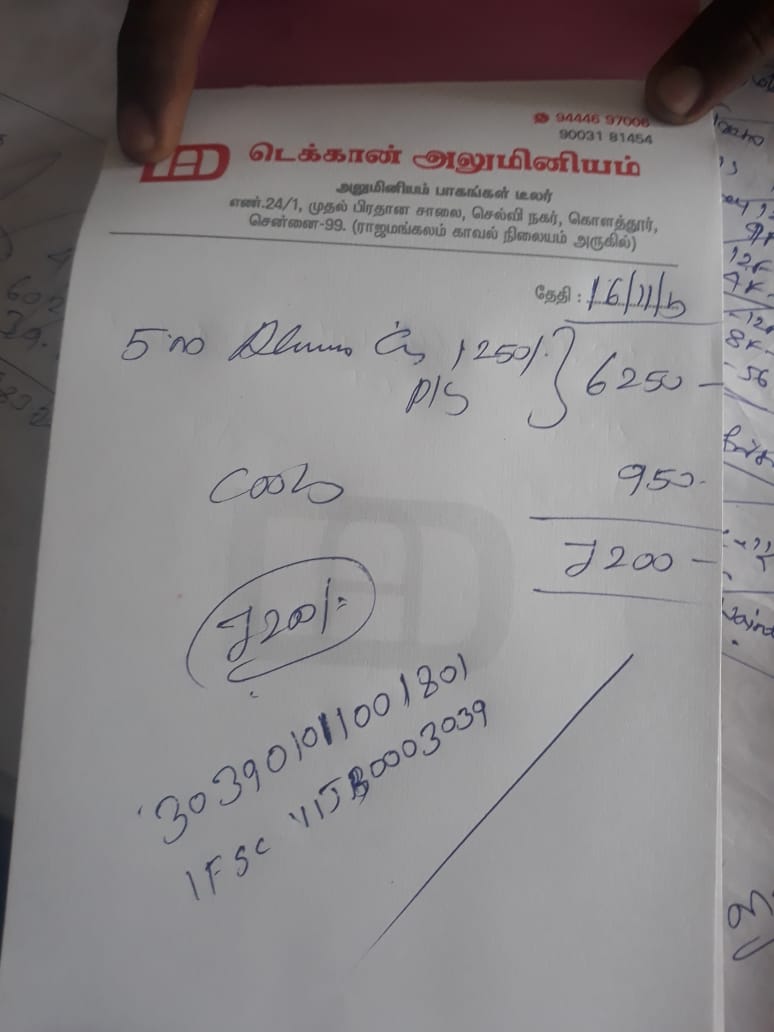 94446 97006
90031 81454
டெக்கான் அலுமினியம்
அலுமினியம் பாகங்கள் டீலர்
எண்.24/1, முதல் பிரதான சாலை, செல்வி நகர், கொளத்தூர்,
சென்னை-99. (ராஜமங்கலம் காவல் நிலையம் அருகில்)
தேதி : 16/11/
5 1250/- 6250 -
P/S
950.
7200 -
7200/-
303901011001801
IFSC VIJB0003039